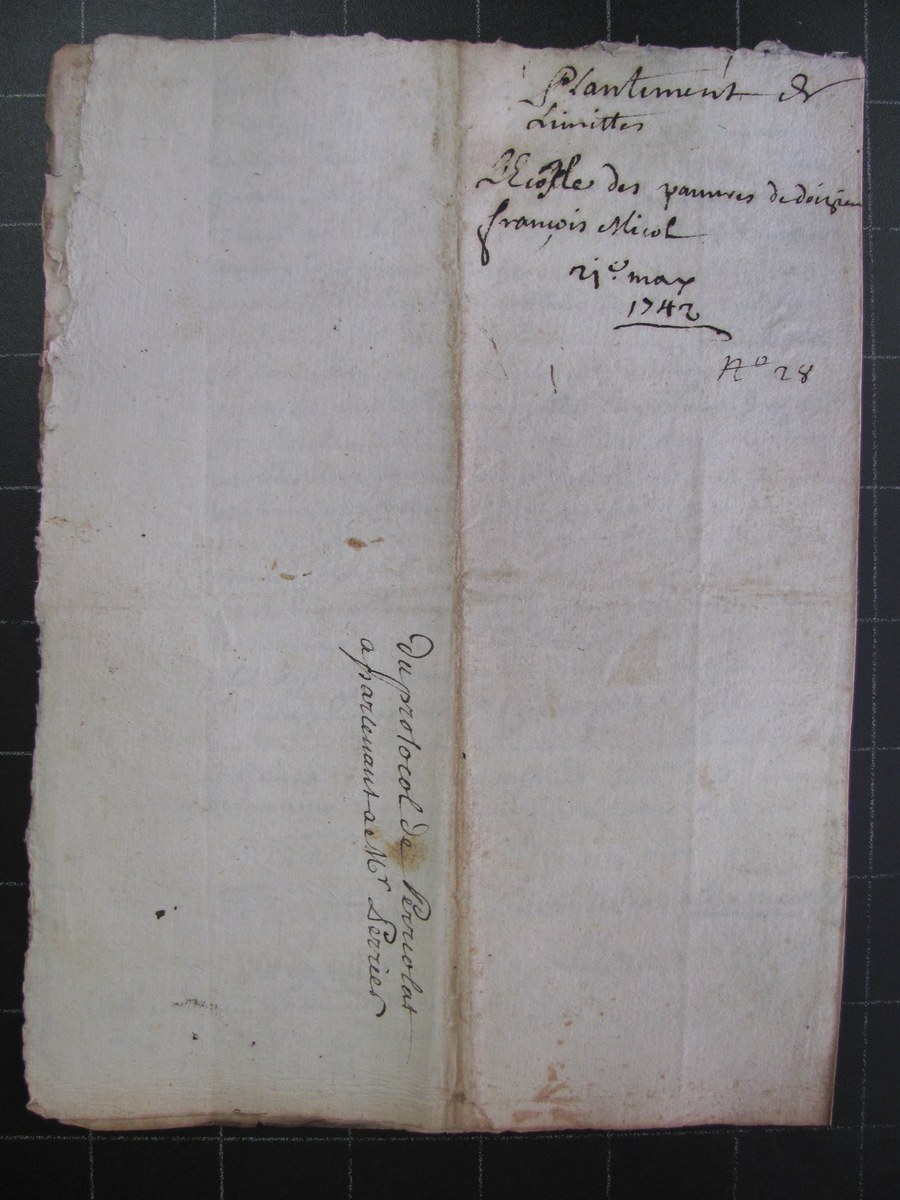 Plantement de
Limittes
L'Ecosle des pauvres de doizieu
françois Micol
21e. may
1742
No 28
Du protocol de Perriolat
appartenant a Mr Perrier